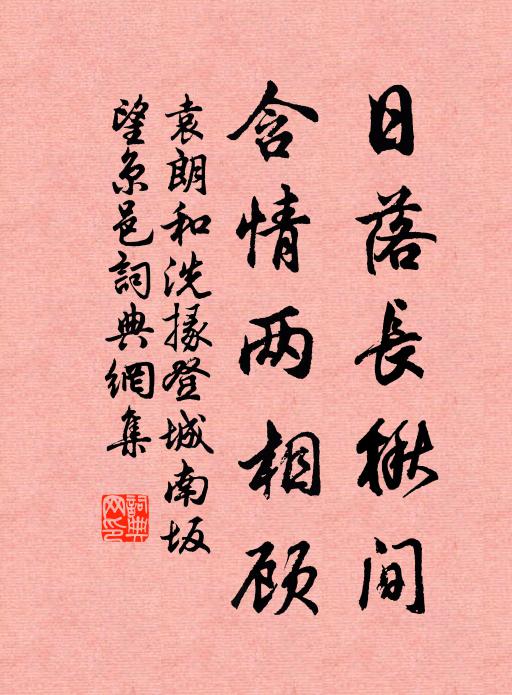 日落長楸间
含情两相顾
袁朗和洗掾登城南坂
望京邑詞典網集
詞典
网印